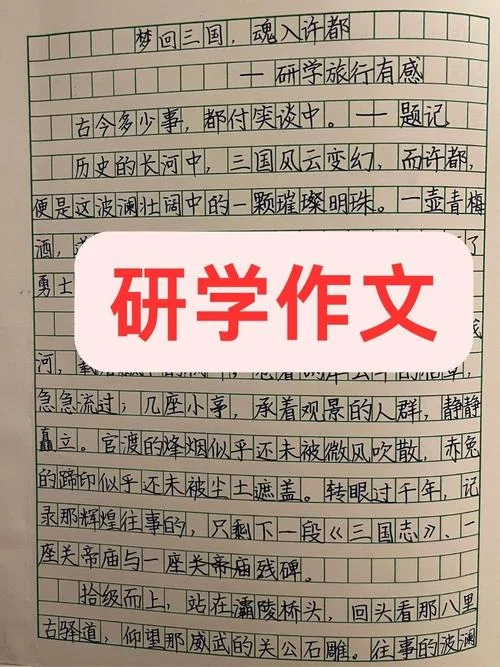 梦回三国，魂入许都
—研学旅行有感
古今多少事，都付笑谈中。—题记
历史的长河中，三国风云变幻，而许都，
便是这波澜壮阔中的一颗璀璨明珠。一壶青梅
酒，
了
勇士
研学作文
河，
急急流过；几座小亭，承着观景的人群，静静
矗立。官渡的烽烟似乎还未被微风吹散，赤兔
的蹄印似乎还未被尘土遮盖。转眼过千年，记
录那辉煌往事的，只剩下一段《三国志》、一
座关帝庙与一座关帝庙残碑。
拾级而上，站在灞陵桥头，回头看那八里
古驿道，仰望那威武的关公石雕。往事的波澜